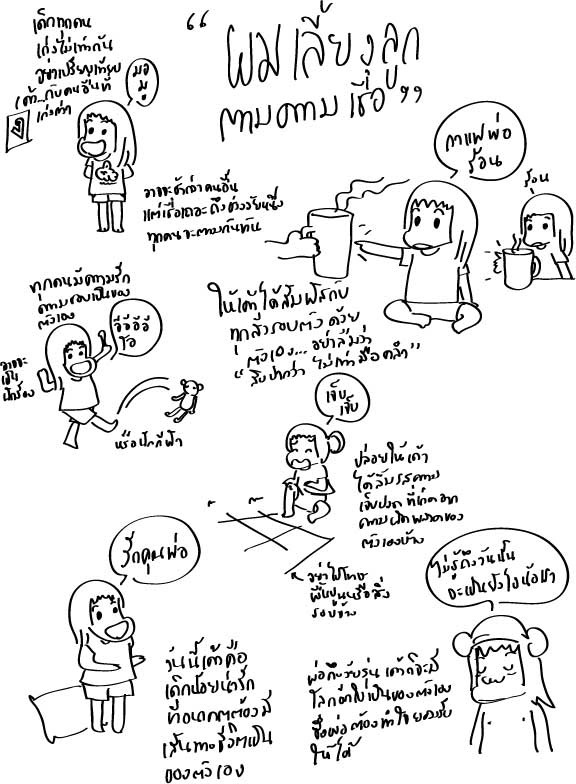 “ผมเลี้ยงลูก
ตามความเชื่อ”
เด็กทุกคน
เก่งไม่เท่ากัน
อย่าเปรียบเทียบ
เค้า...กับคนอื่นที่
เก่งกว่า
อาจจะช้ากว่าคนอื่น
แต่เชื่อเถอะถึงช่วงวัยหนึ่ง
ทุกคนจะตามกันทัน
กาแฟพ่อ
ร้อน
ร้อน
ให้เค้าได้สัมผัสกับ
ทุกสิ่งรอบตัวด้วย
ตัวเอง... อย่าลืมว่า
“สิบปากว่า ไม่เท่ามือคลำ”
ทุกคนมีความรัก
ความชอบเป็นของ
ตัวเอง
อีอีอีอี
โอ
อาจจะ
เป็น
นักร้อง
หรือนักกีฬา
เจ็บ
เจ็บ
ปล่อยให้เค้า
ได้ลิ้มรสความ
เจ็บปวด ที่เกิดจาก
ความผิดพลาดของ
ตัวเองบ้าง
อย่าไปโทษ
พื้นปูนหรือสิ่ง
รอบข้าง
รักคุณพ่อ
วันนี้เค้าคือ
เด็กน้อยน่ารัก
ที่อนาคตต้องมี
เส้นทางชีวิตเป็น
ของตัวเอง
ไม่รู้ถึงวันนั้น
จะเป็นยังไงน้อเรา
พ่อถึงวัยรุ่น เค้าก็จะมี
โลกส่วนใหญ่เป็นของตัวเอง
ซึ่งพ่อต้องทำใจยอมรับ
ให้ได้